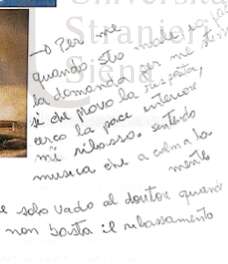 Università
Stranieri
Siena
→ Per me
quando sto male, mi faccio
la domanda per me stessa
si che provo la risposta,
cerco la pace interior
mi rilasso. sentendo
musica che a calma la
mente
e solo vado al doutor quando
non basta il rilassamento